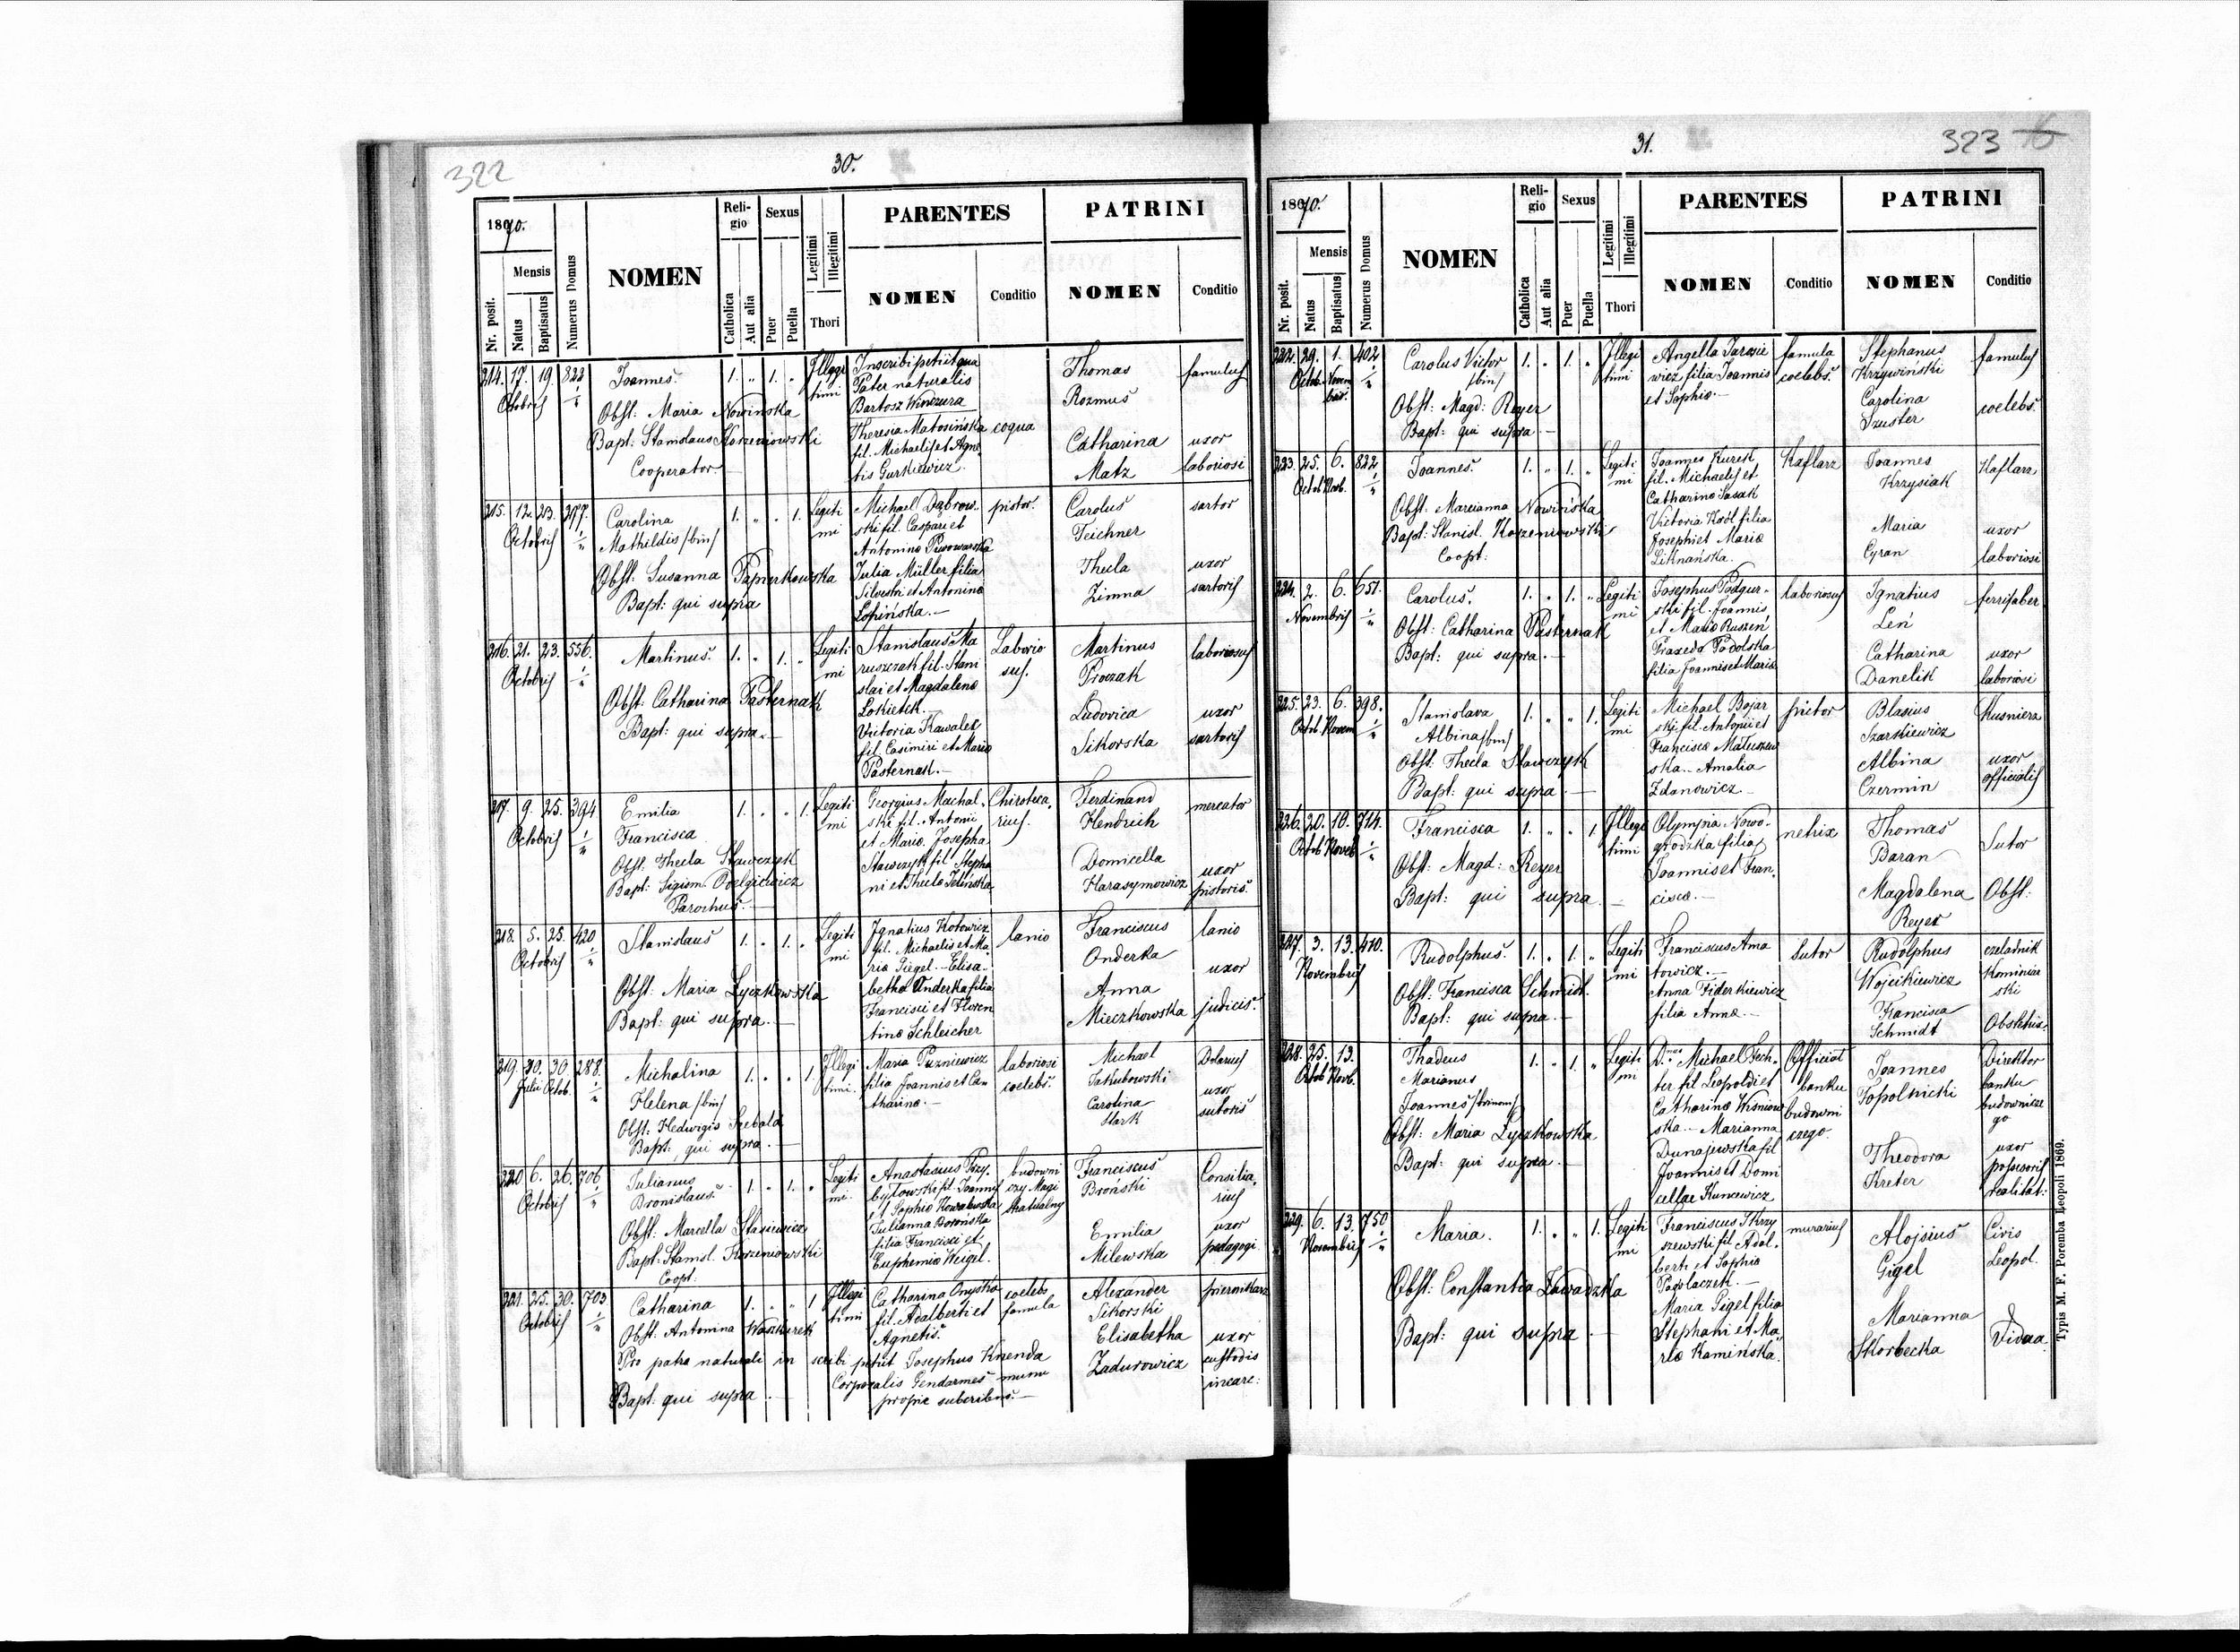 322
30.
1870.
Nr. posit.
Mensis
Natus
Baptisatus
Numerus Domus
NOMEN
Religio
Catholica
Aut alia
Sexus
Puer
Puella
Legitimi
Illegitimi
Thori
PARENTES
NOMEN
Conditio
PATRINI
NOMEN
Conditio
214. 17. 19. 822
Octobris
Joannes.
Obst. Maria Nowinska
Bapt: Stanislaus Korzeniowski
Cooperator.
1. „ 1. „
Illegi
timi
Inscribi petiit qua
Pater naturalis
Bartosz Winczura
Theresia Matosińska
fil. Michaelis et Agne
tis Gurkiewicz.
coqua
Thomas
Rozmus
famulus
Catharina
Matz
uxor
laboriosi
215. 12. 23. 277.
Octobris
Carolina
Mathildis /bin/
Obst: Susanna Papierkowska
Bapt: qui supra
1. „ „ 1.
Legiti
mi
Michael Dąbrow
ski fil. Caspari et
Antoninæ Piwowarska
Julia Müller filia
Silvestri et Antoninæ
Łopińska.—
pistor.
Carolus
Teichner
sartor
Thecla
Zimna
uxor
sartoris
216. 21. 23. 556.
Octobris
Martinus.
Obst. Catharina Pasternak
Bapt: qui supra.—
1. „ 1. „
Legiti
mi
Stanislaus Ma
ruszczak fil. Stani
slai et Magdalenæ
Łokietek.—
Victoria Kawalec
fil. Casimiri et Mariæ
Pasternak.—
Laborio
sus.
Martinus
Proczak
laboriosus
Ludovica
Sikorska
uxor
sartoris
217. 9. 25. 394
Octobris
Emilia
Francisca
Obst. Thecla Sławczyk
Bapt: Sigism. Odelgiewicz
Parochus.—
1. „ „ 1.
Legiti
mi
Georgius Machal
ski fil. Antonii
et Mariæ. Josepha
Sławczyk fil. Stepha
ni et Theclæ Zelińska
Chiroteca
rius.
Ferdinand
Hendrich
mercator
Domicella
Harasymowicz
uxor
pistoris.
218. 5. 25. 420
Octobris
Stanislaus
Obst. Maria Łyczkowska
Bapt: qui supra.—
1. „ 1. „
Legiti
mi
Ignatius Kotowicz
fil. Michaelis et Ma
riæ Siegel.—Elisa
betha Onderka filia
Francisci et Floren
tinæ Schleicher
lanio
Franciscus
Onderka
lanio
Anna
Mieczkowska
uxor
judicis.
219. 30. 30. 288.
Julii Octob.
Michalina
Helena /bin/
Obst: Hedwigis Siebald
Bapt: qui supra.—
1. „ „ 1
Illegi
timi.
Maria Puzniewicz
filia Joannis et Ca
tharinæ.—
laboriosi
coelebs.
Michael
Jakubowski
Carolina
Stark
Dolarius
uxor
sutoris
220. 6. 26. 706.
Octobris
Julianus
Bronislaus.
Obst: Marcella Staniewicz
Bapt: Stanisl. Korzeniowski
Coopt:
1. „ 1. „
Legiti
mi.
Anastasius Przy
byłowski fil. Joannis
et Sophiæ Kowalewska
Julianna Bronńska
filia Francisci et
Euphemiæ Weigel.
budowni
czy Magi
stratualny
Franciscus
Broński
Consilia
rius
Emilia
Milewska
uxor
pedagogi
221. 25. 30. 703
Octobris
Catharina
Obst: Antonina Waszkurek
Pro patre naturali in scribi petiit Josephus Knenda
Corporalis Gendarmes manu
proprie subcribens.—
Bapt: qui supra.—
1. „ „ 1
Illegi
timi
Catharina Onyśko
fil. Adalberti et
Agnetis.
coelebs
famula
Alexander
Sikorski
piernikarz
Elisabetha
Zadurowicz
uxor
custodis
incarc:
323
31.
1870.
Nr. posit.
Mensis
Natus
Baptisatus
Numerus Domus
NOMEN
Religio
Catholica
Aut alia
Sexus
Puer
Puella
Legitimi
Illegitimi
Thori
PARENTES
NOMEN
Conditio
PATRINI
NOMEN
Conditio
222. 29. 1. 402
Octob. Novem
bris.
Carolus Victor
/bin/
Obst: Magd: Reyer
Bapt: qui supra —
1. „ 1. „
Illegi
timi
Angella Jarosie
wicz filia Joannis
et Sophiæ.—
famula
coelebs.
Stephanus
Krzywiński
Carolina
Szuster
famulus
coelebs.
223. 25. 6. 822
Octob Novb.
Joannes.
Obst: Marianna Nowińska
Bapt: Stanisl. Korzeniowski
Coopt:
1. „ 1. „
Legiti
mi
Joannes Kurek
fil. Michaelis et
Catharinæ Sasak
Victoria Król filia
Josephi et Mariæ
Liknańska.
Kaflarz
Joannes
Krzysiak
Kaflarz
Maria
Cyran
uxor
laboriosi
224. 2. 6. 651.
Novembris
Carolus.
Obst: Catharina Pasternak
Bapt: qui supra.—
1. „ 1. „
Legiti
mi
Josephus Podgur
ski fil. Joannis
et Mariæ Ruszeń
Praxeda Podolska
filia Joannis et Mariæ
laboriosus
Ignatius
Leń
ferrifaber.
Catharina
Danelik
uxor
laboriosi
225. 23. 6. 398.
Octob. Novem
Stanislava
Albina /bin/
Obst: Thecla Sławczyk
Bapt: qui supra —
1. „ „ 1.
Legiti
mi
Michael Bojar
ski fil. Antonii et
Franciscæ Matuszew
ska.—Amalia
Zdanowicz.—
pictor
Blasius
Szarkiewicz
Kusnierz
Albina
Czermin
uxor
officialis
226. 20. 10. 714.
Octob Noveb
Francisca
Obst: Magd: Reyer
Bapt: qui supra.—
1. „ „ 1
Illegi
timi
Olympia Nowo
grodzka filia
Joannis et Fran
ciscæ.—
netrix
Thomas
Baran
Sutor
Magdalena
Reyer
Obst:
227. 3. 13. 410.
Novembris
Rudolphus.
Obst: Francisca Schmidt.
Bapt: qui supra.—
1. „ 1. „
Legiti
mi
Franciscus Ama
towicz.—
Anna Fiderkiewicz
filia Annæ.—
Sutor
Rudolphus
Wojcikiewicz
czeladnik
Kominiar
ski
Francisca
Schmidt
Obstetrix
228. 25. 13.
Octob Novb.
Thadeus
Marianus
Joannes /trinom/
Obst: Maria Łyczkowska
Bapt: qui supra.—
1. „ 1. „
Legiti
mi
Dnus Michael Fech
ter fil Leopoldi et
Catharinæ Wisniow
ska.—Marianna
Dunajewska fil
Joannis et Domi
cellæ Kuncewicz
Official
banku
budowni
czego
Joannes
Topolnicki
Direktor
banku
budownicze
go
Theodora
Kreter
uxor
possesoris
realitat:
229. 6. 13. 750
Novembris
Maria.
Obst: Constantia Zawadzka
Bapt: qui supra —
1. „ „ 1.
Legiti
mi
Franciscus Skrzy
szewski fil Adal
berti et Sophiæ
Podolaczek.—
Maria Gigel filia
Stephani et Ma
riæ Kamińska.
murarius
Alojsius
Gigel
Civis
Leopol.
Marianna
Skorbecka
Vidua
Typis M. F. Poremba Leopoli 1869.